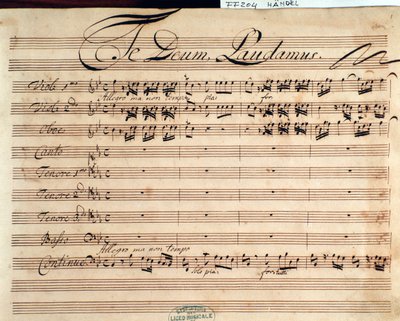 FF204 HÄNDEL
Te Deum Laudamus.
Viol: 1mo
Allegro ma non tempo pia for
Viol: 2do
Oboe
Canto
Tenore 1mo
Tenore 2do
Tenore 3o
Basso
Allegro ma non tempo
Continuo
solo pia for tutti
LICEO MUSICALE